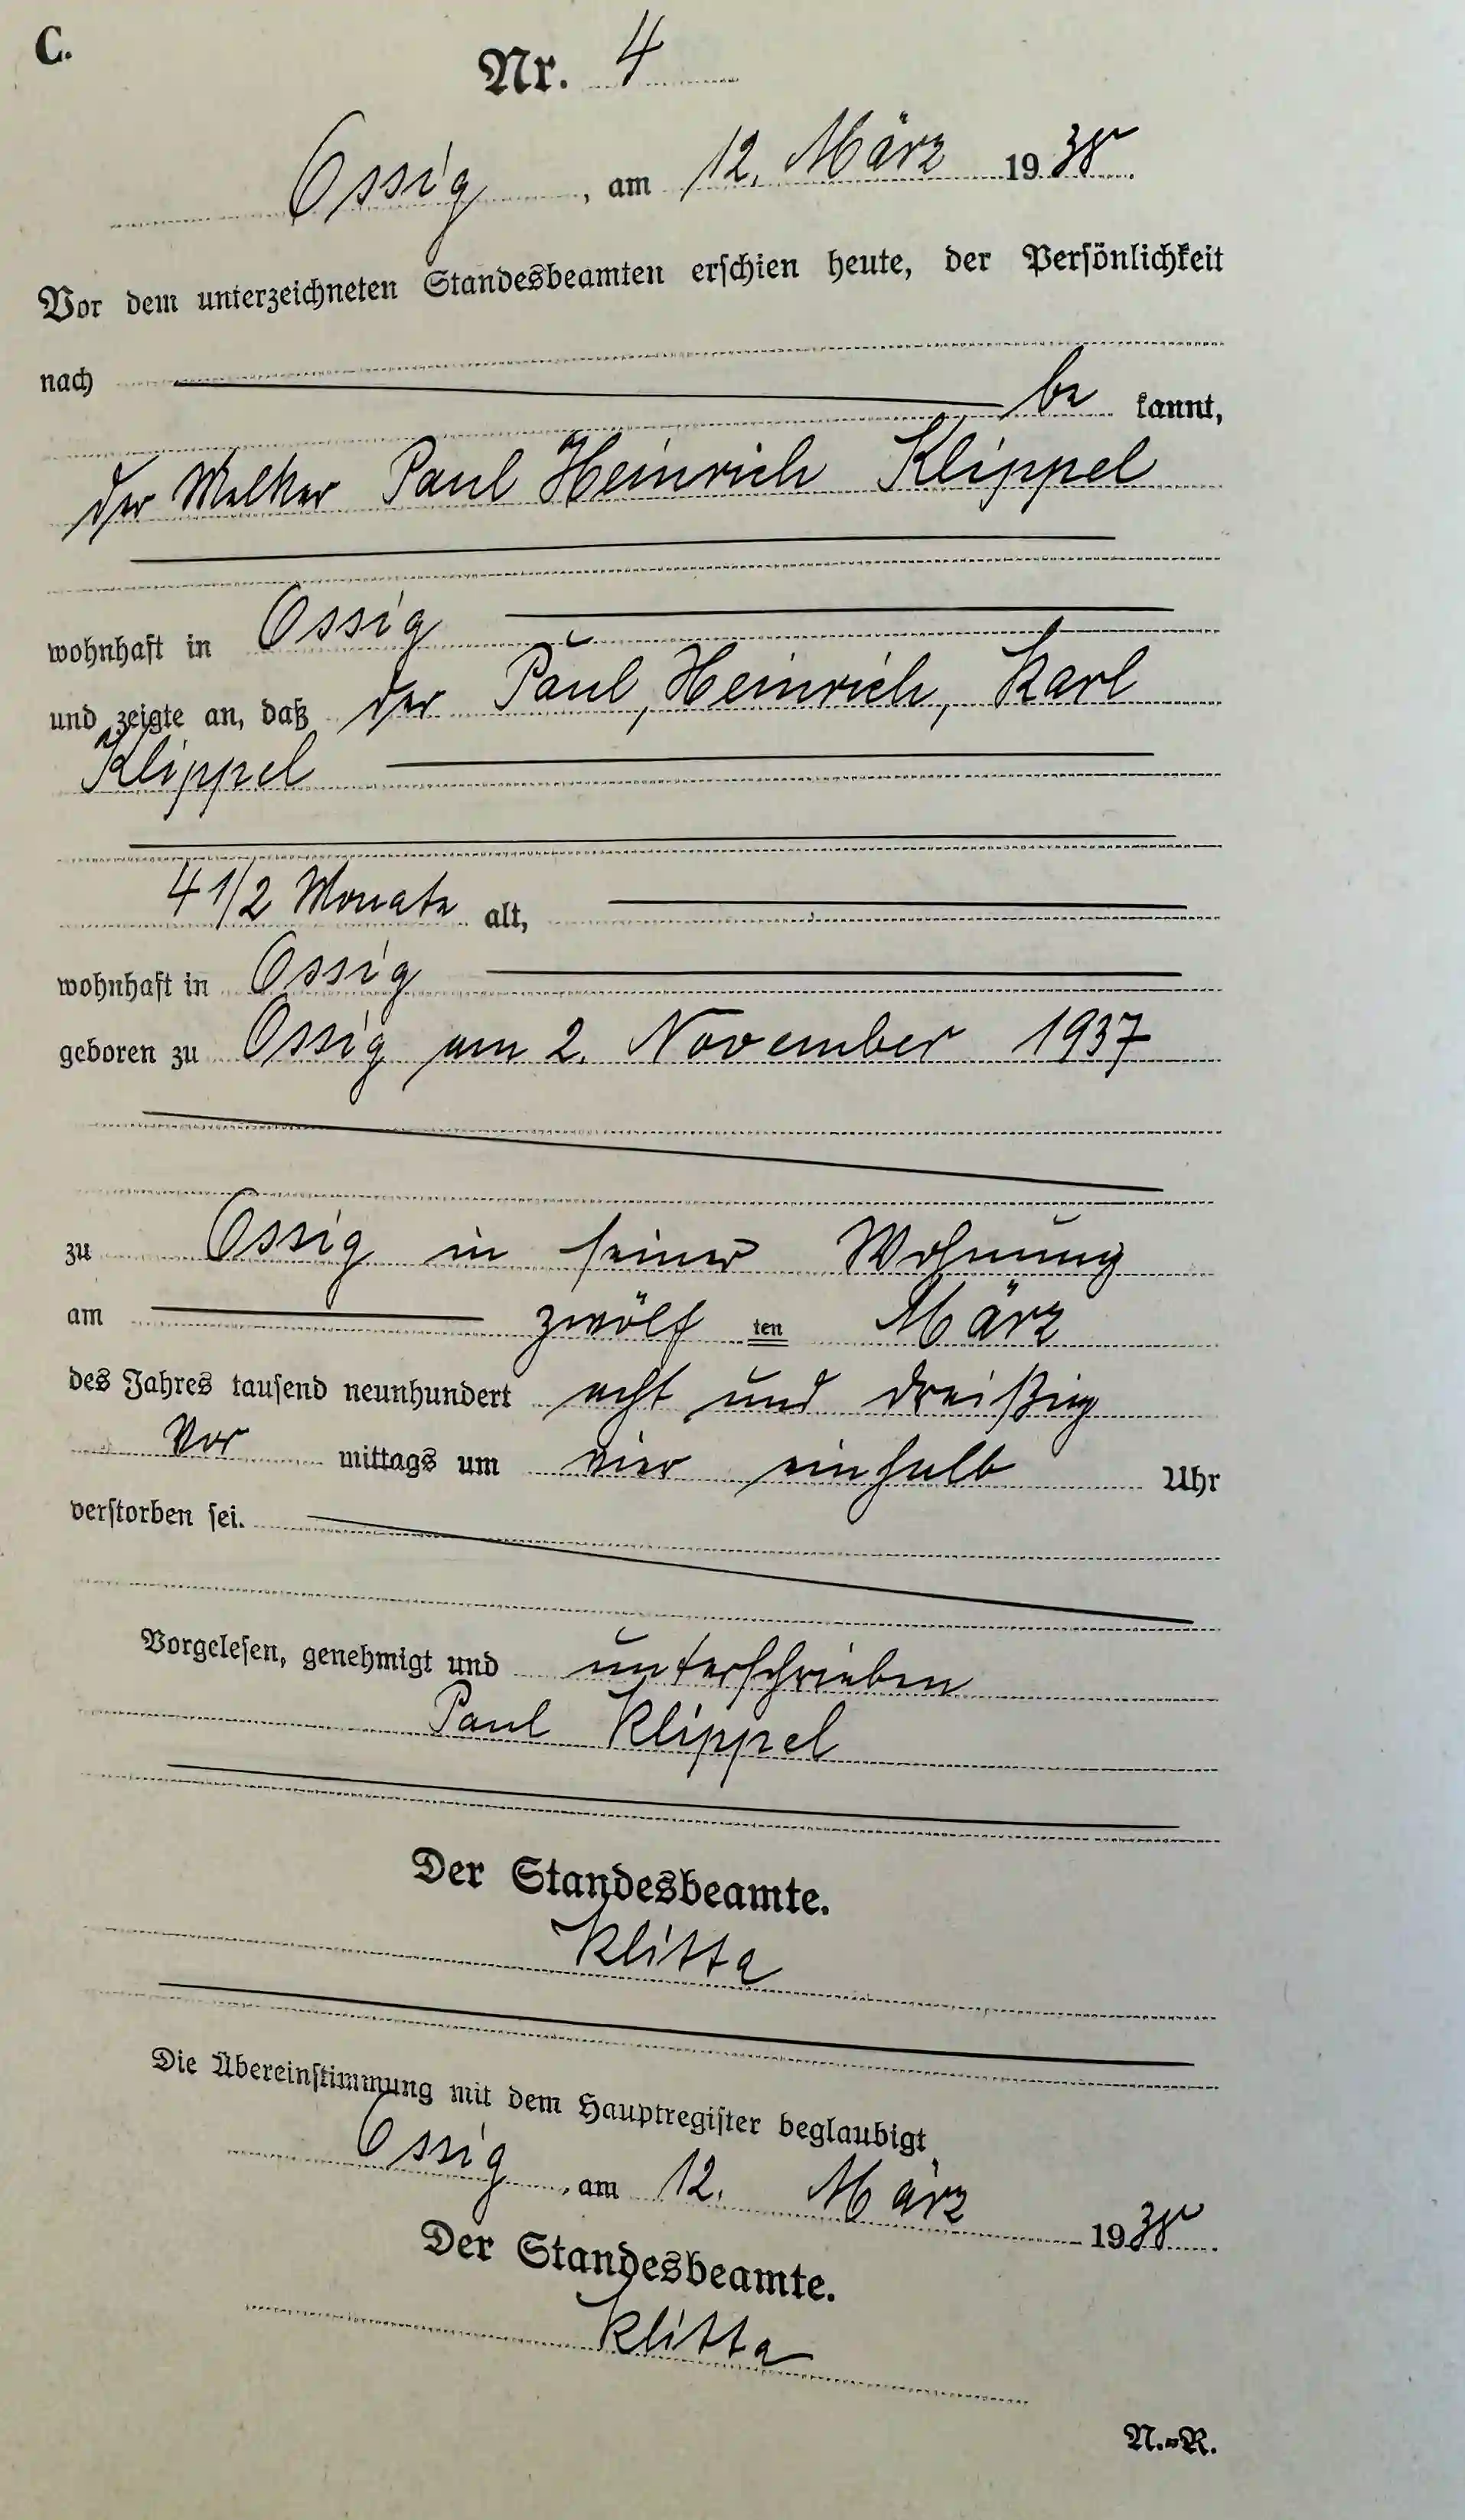 C.
Nr. 4
Ossig, am 12. März 1938.
Vor dem unterzeichneten Standesbeamten erschien heute, der Persönlichkeit
nach be kannt,
der Melker Paul Heinrich Klippel
wohnhaft in Ossig
und zeigte an, daß der Paul, Heinrich, Karl
Klippel
4 1/2 Monate alt,
wohnhaft in Ossig
geboren zu Ossig am 2. November 1937
zu Ossig in seiner Wohnung
am zwölf ten März
des Jahres tausend neunhundert acht und dreißig
Vor mittags um vier einhalb Uhr
verstorben sei.
Vorgelesen, genehmigt und unterschrieben
Paul Klippel
Der Standesbeamte.
Klitta
Die Übereinstimmung mit dem Hauptregister beglaubigt
Ossig, am 12. März 1938.
Der Standesbeamte.
Klitta
N.=R.